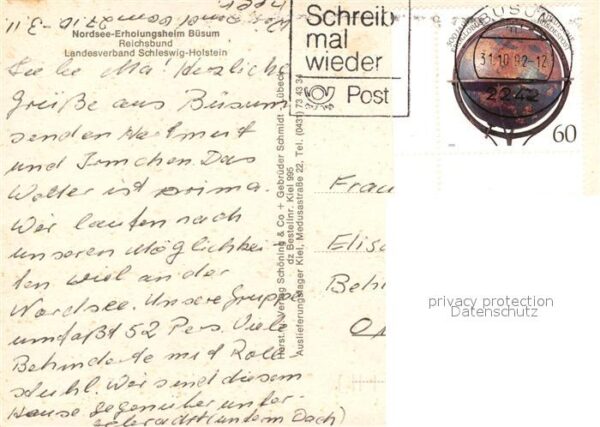 27.10.-3.11
Nordsee-Erholungsheim Büsum
Reichsbund
Landesverband Schleswig-Holstein
Schreib
mal
wieder
Post
BÜSUM
31.10.92-12
2242
60
Liebe Ma! Herzliche
Grüße aus Büsum
senden Hartmut
und Irmchen. Das
Wetter ist prima.
Wir laufen nach
unseren Möglichkei-
ten viel an der
Nordsee. Unsere Gruppe
umfaßt 52 Pers. Viele
Behinderte mit Roll-
stuhl. Wir sind diesem
Hause gegenüber unter-
gebracht (unterm Dach)
Horst + Verlag Schöning & Co + Gebrüder Schmidt Lübeck
dz Bestellnr. Kiel 995
Auslieferungslager Kiel, Medusastraße 22, Tel. (0431) 73 43 34
Frau
Elis
Behr
privacy protection
Datenschutz